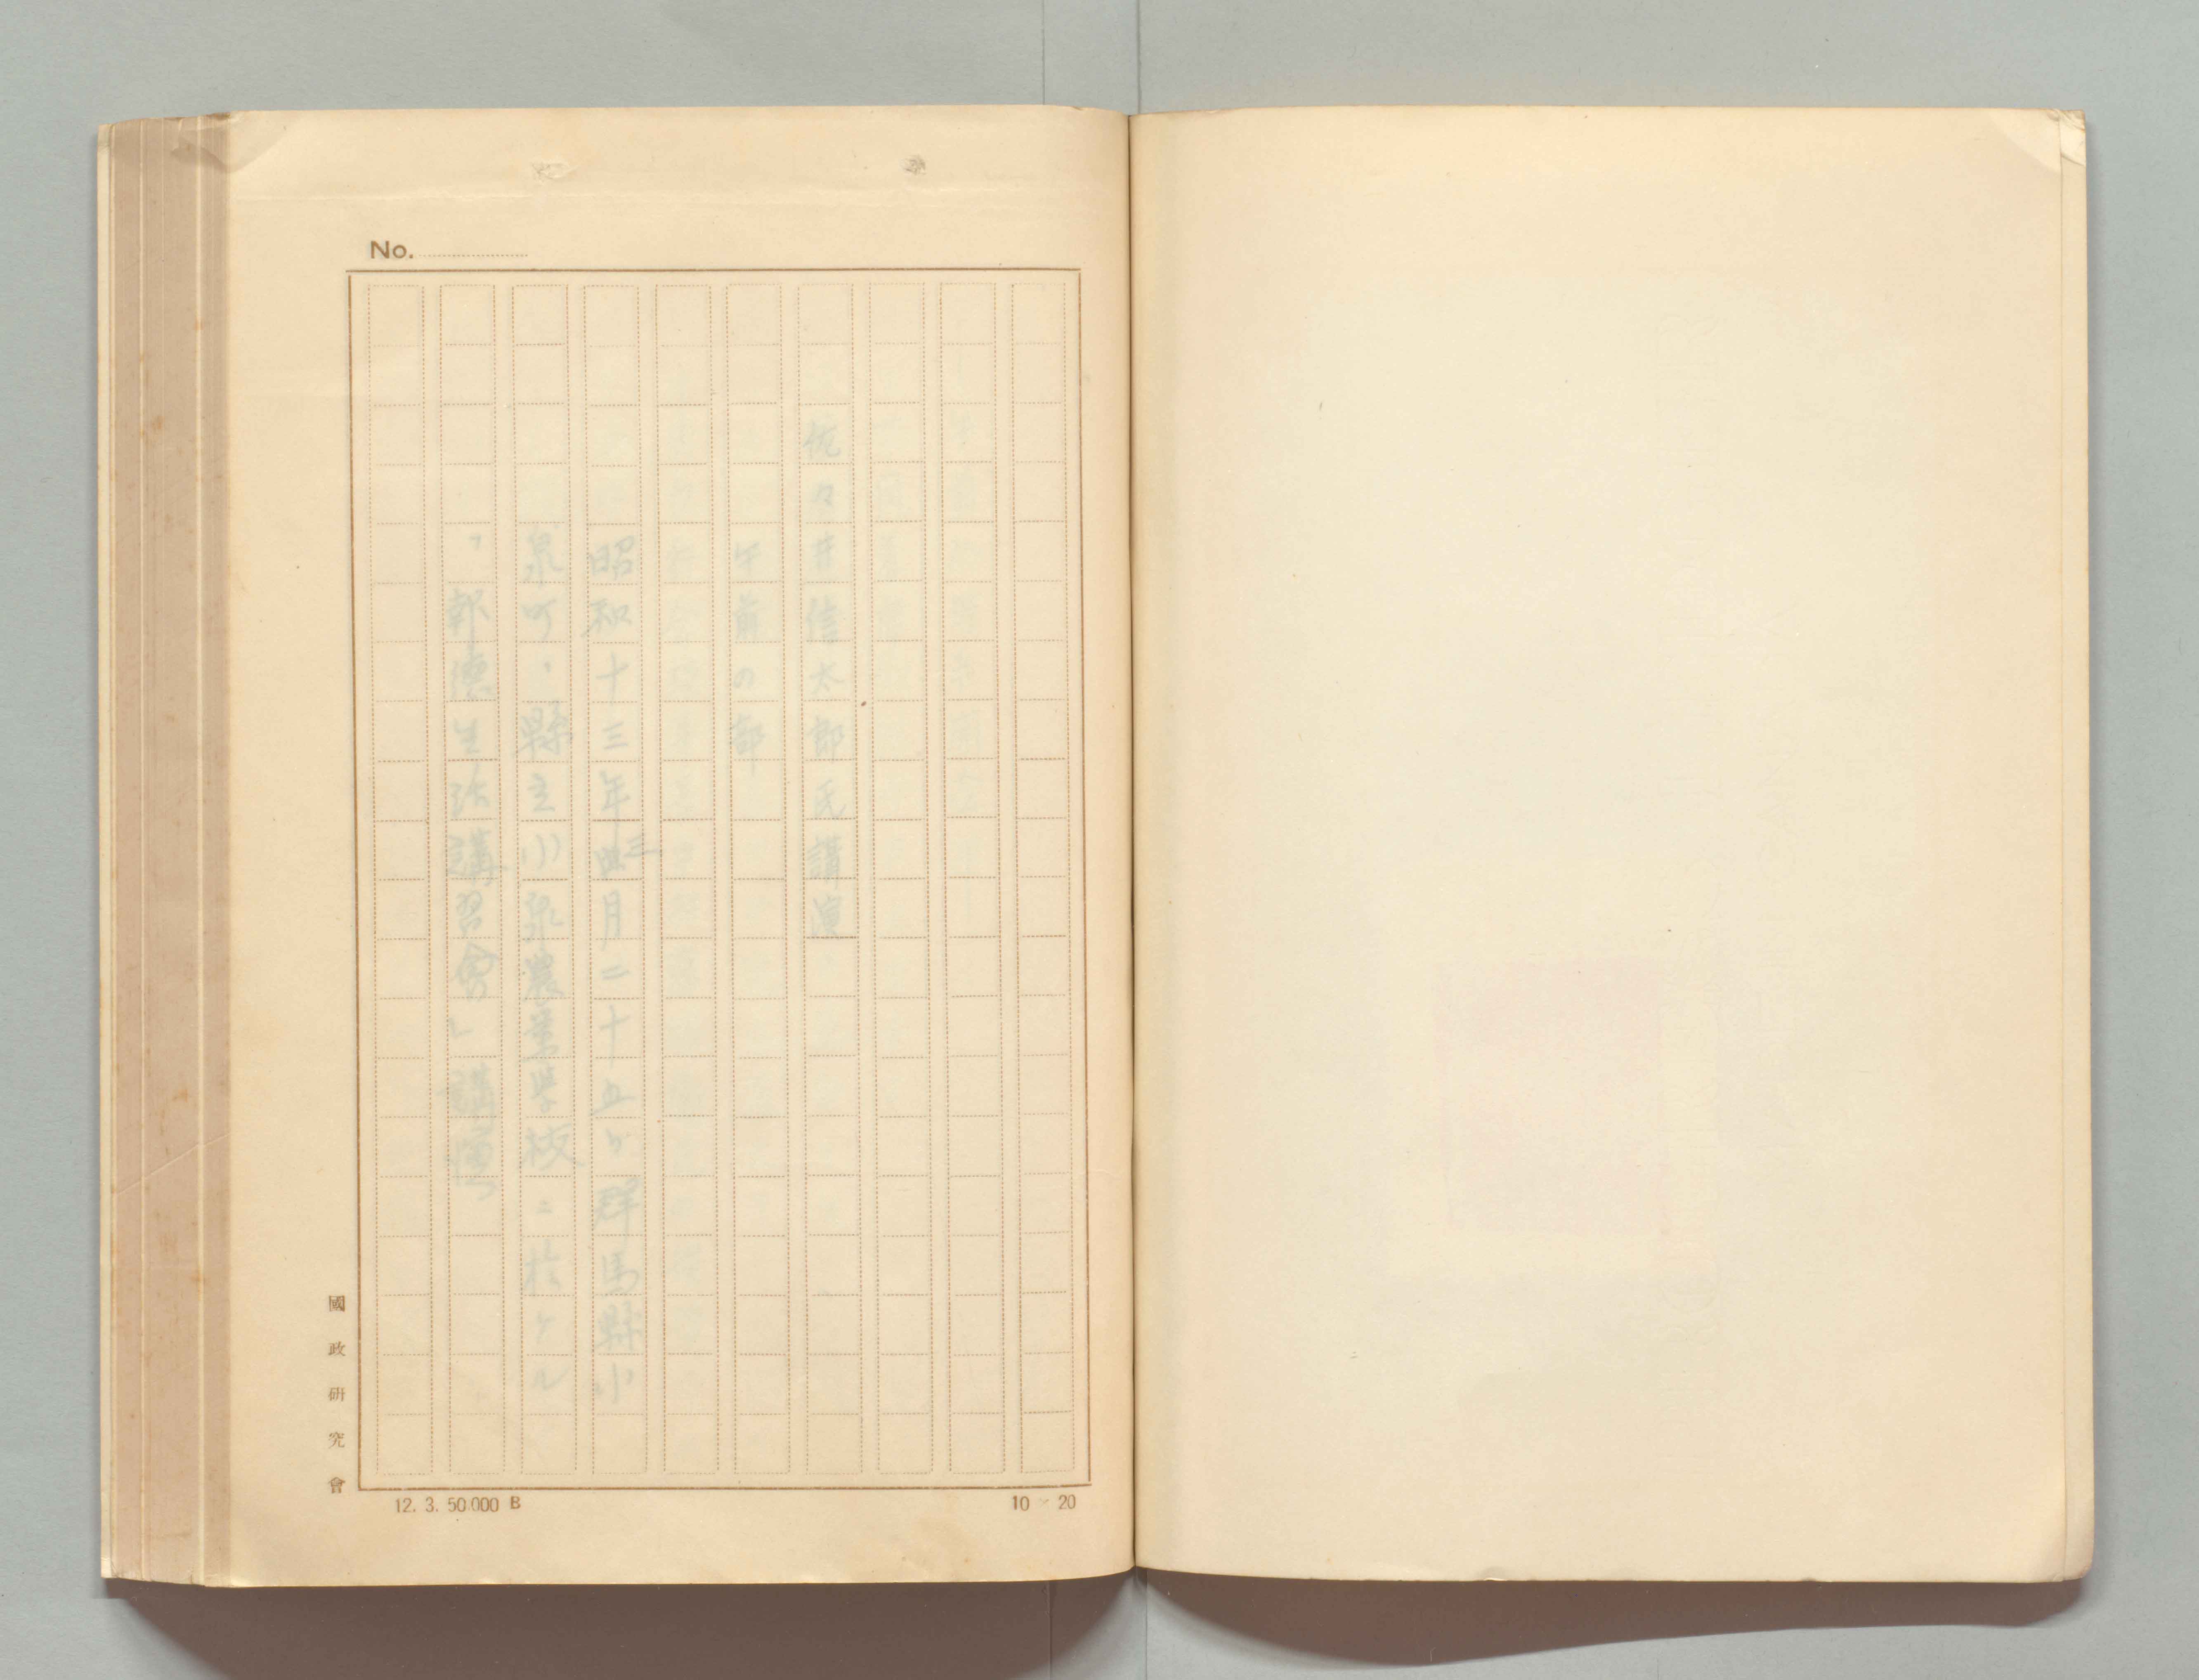 No.
佐々井信太郎氏講演
午前の部
昭和十三年三月二十五日群馬縣小
泉町、縣立小泉農業學校ニ於ケル
「報德生活講習會」講演
國政研究會
12. 3. 50.000 B
10 × 20